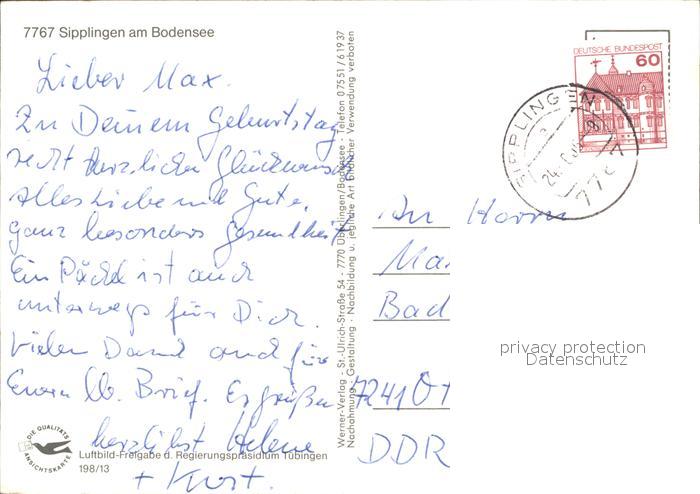 7767 Sipplingen am Bodensee
Lieber Max.
Zu Deinem Geburtstag
recht herzlichen Glückwunsch
Alles Liebe und Gute,
ganz besonders Gesundheit
Ein Päckl ist auch
unterwegs für Dich.
Vielen Dank auch für
Euren lb. Brief. Es grüßen
herzlichst Helene
+ Kurt.
Luftbild-Freigabe d. Regierungspräsidium Tübingen
198/13
DIE QUALITÄTS
ANSICHTSKARTE
Werner-Verlag - St.-Ulrich-Straße 54 - 7770 Überlingen/Bodensee - Telefon 07551/61937
Nachahmung - Gestaltung - Nachbildung u. jegliche Art bildlicher Verwendung verboten
DEUTSCHE BUNDESPOST
60
SIPPLINGEN
7767
An Herrn
Ma
Bad
7241
DDR
privacy protection
Datenschutz